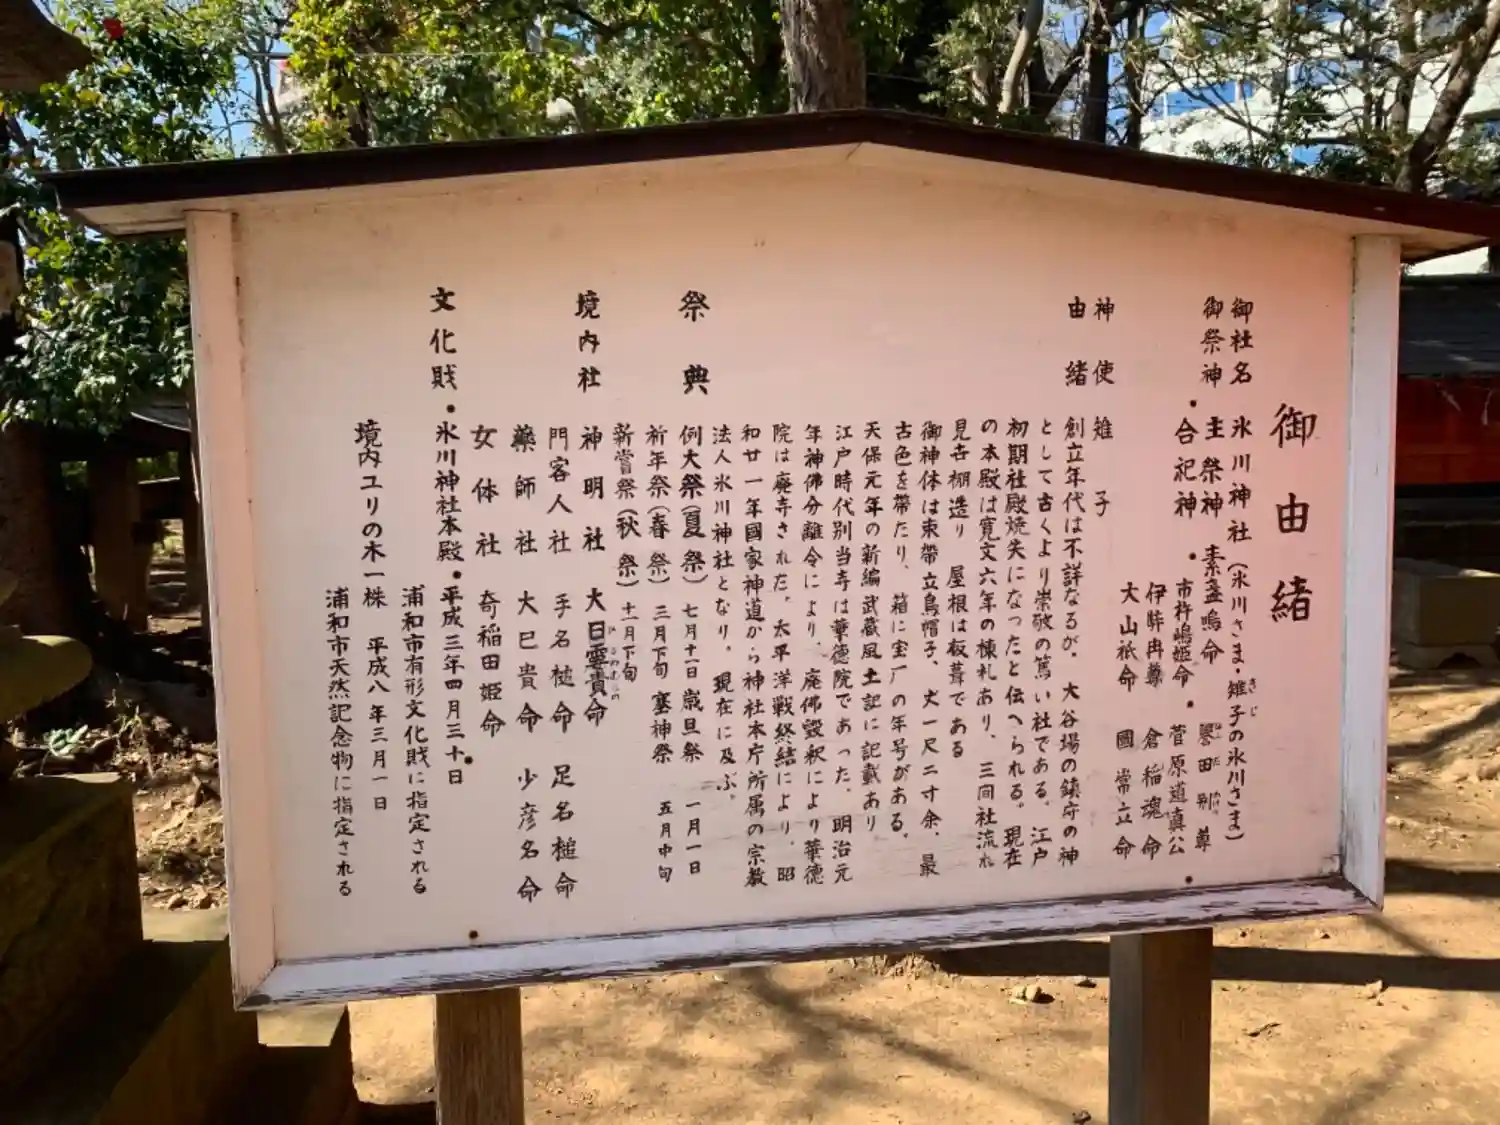 御由緒
御社名 氷川神社(氷川さま・雉子の氷川さま)
きじ
御祭神 主祭神 素盞嗚命 譽田別尊
合祀神 市杵嶋姫命 菅原道真公
伊弉冉尊 倉稲魂命
大山祇命 國常立命
神使 雉子
由緒 創立年代は不詳なるが、大谷場の鎮守の神
として古くより崇敬の篤い社である。江戸
初期社殿焼失になったと伝へられる。現在
の本殿は寛文六年の棟札あり、三间社流れ
見世棚造り 屋根は板葺である
御神体は束帶立烏帽子、丈一尺二寸余、最
古色を帶たり、箱に宝厂の年号がある。
天保元年の新編武蔵風土記に記載あり
江戸時代別当寺は華德院であった。明治元
年神佛分離令により、廃佛毀釈により華德
院は廃寺された。太平洋戦終結により、昭
和廿一年國家神道から神社本庁所属の宗教
法人氷川神社となり。現在に及ぶ。
祭典 例大祭(夏祭) 七月十一日 歳旦祭 一月一日
祈年祭(春祭) 三月下旬 塞神祭 五月中旬
新嘗祭(秋祭) 十一月下旬
境内社 神明社 大日孁貴命
門客人社 手名槌命 足名槌命
藥師社 大巳貴命 少彦名命
女体社 奇稲田姫命
文化財 氷川神社本殿 平成三年四月三十日
浦和市有形文化財に指定される
境内ユリの木一株 平成八年三月一日
浦和市天然記念物に指定される